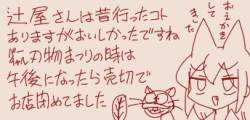 辻屋さんは昔行ったコト
ありますがおいしかったですね
刃物まつりの時は
午後になったら売切で
お店閉めてました
おえかき
して
きた